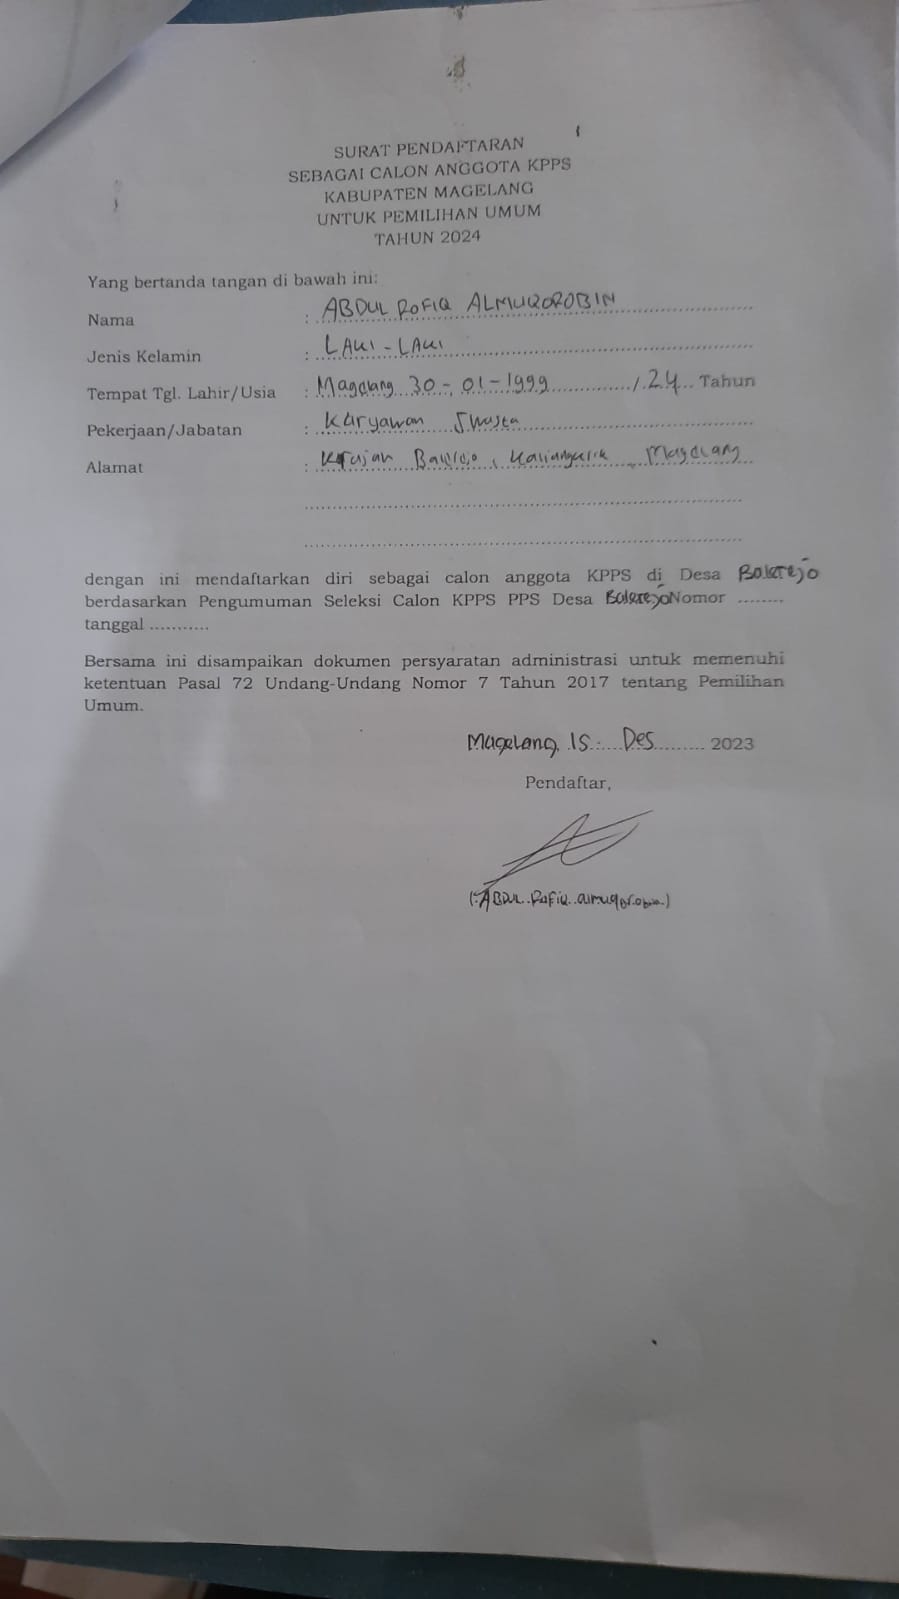 SURAT PENDAFTARAN
SEBAGAI CALON ANGGOTA KPPS
KABUPATEN MAGELANG
UNTUK PEMILIHAN UMUM
TAHUN 2024
Yang bertanda tangan di bawah ini:
Nama : ABDUL ROFIQ ALMUQOROBIN
Jenis Kelamin : LAKI - LAKI
Tempat Tgl. Lahir/Usia : Magelang 30 - 01 - 1999 / 24 Tahun
Pekerjaan/Jabatan : Karyawan Swasta
Alamat : Krajan Balerejo, Kaliangkrik Magelang
dengan ini mendaftarkan diri sebagai calon anggota KPPS di Desa Balerejo
berdasarkan Pengumuman Seleksi Calon KPPS PPS Desa Balerejo Nomor ........
tanggal ...........
Bersama ini disampaikan dokumen persyaratan administrasi untuk memenuhi
ketentuan Pasal 72 Undang-Undang Nomor 7 Tahun 2017 tentang Pemilihan
Umum.
Magelang, 15 Des 2023
Pendaftar,
(ABDUL Rofiq almuqorobin)